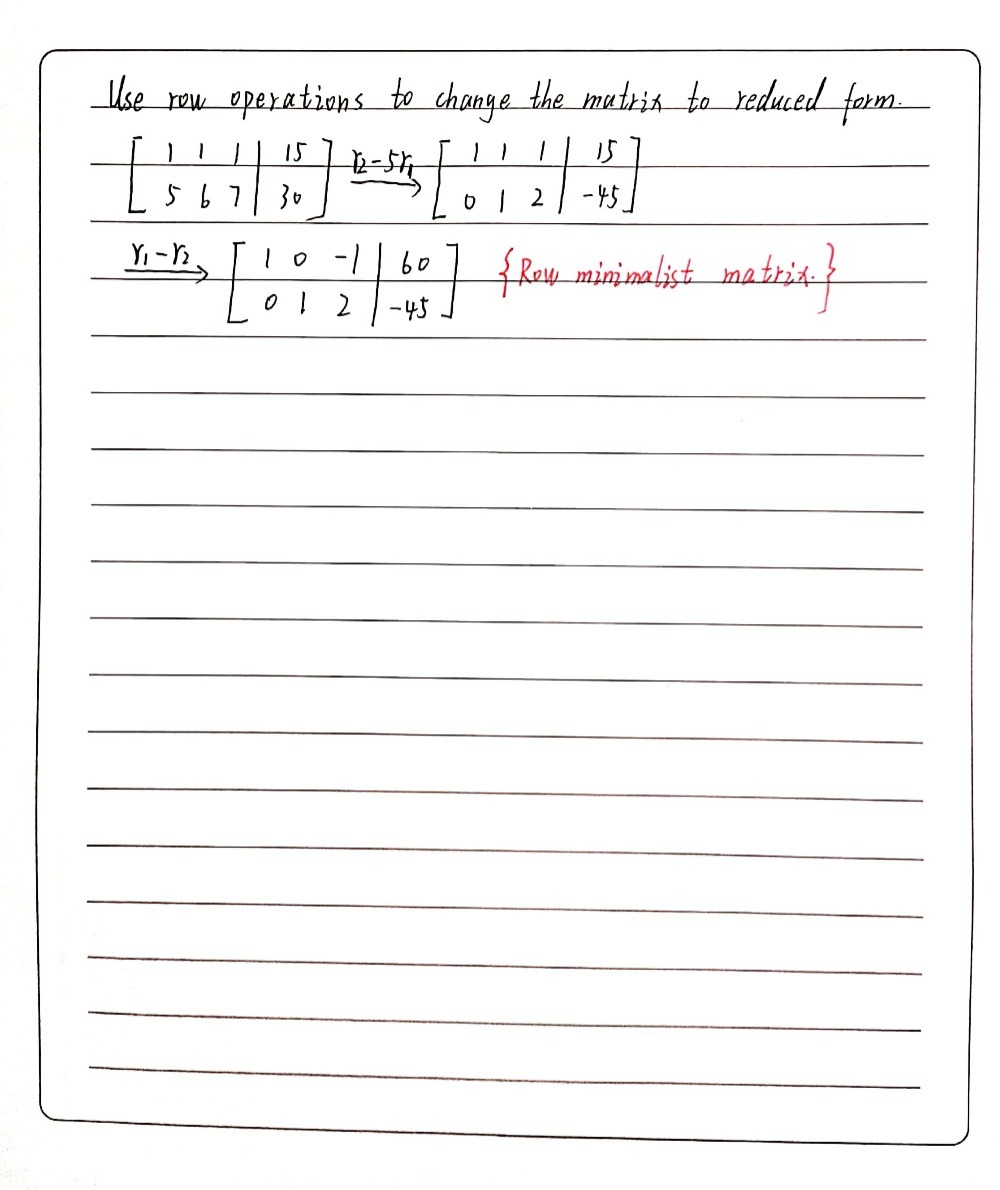 Use row operations to change the matrix to reduced form.
[ 1 1 1 | 15 ] r2-5r1 [ 1 1 1 | 15 ]
[ 5 6 7 | 30 ] → [ 0 1 2 | -45 ]
r1-r2 [ 1 0 -1 | 60 ] {Row minimalist matrix.}
→ [ 0 1 2 | -45 ]